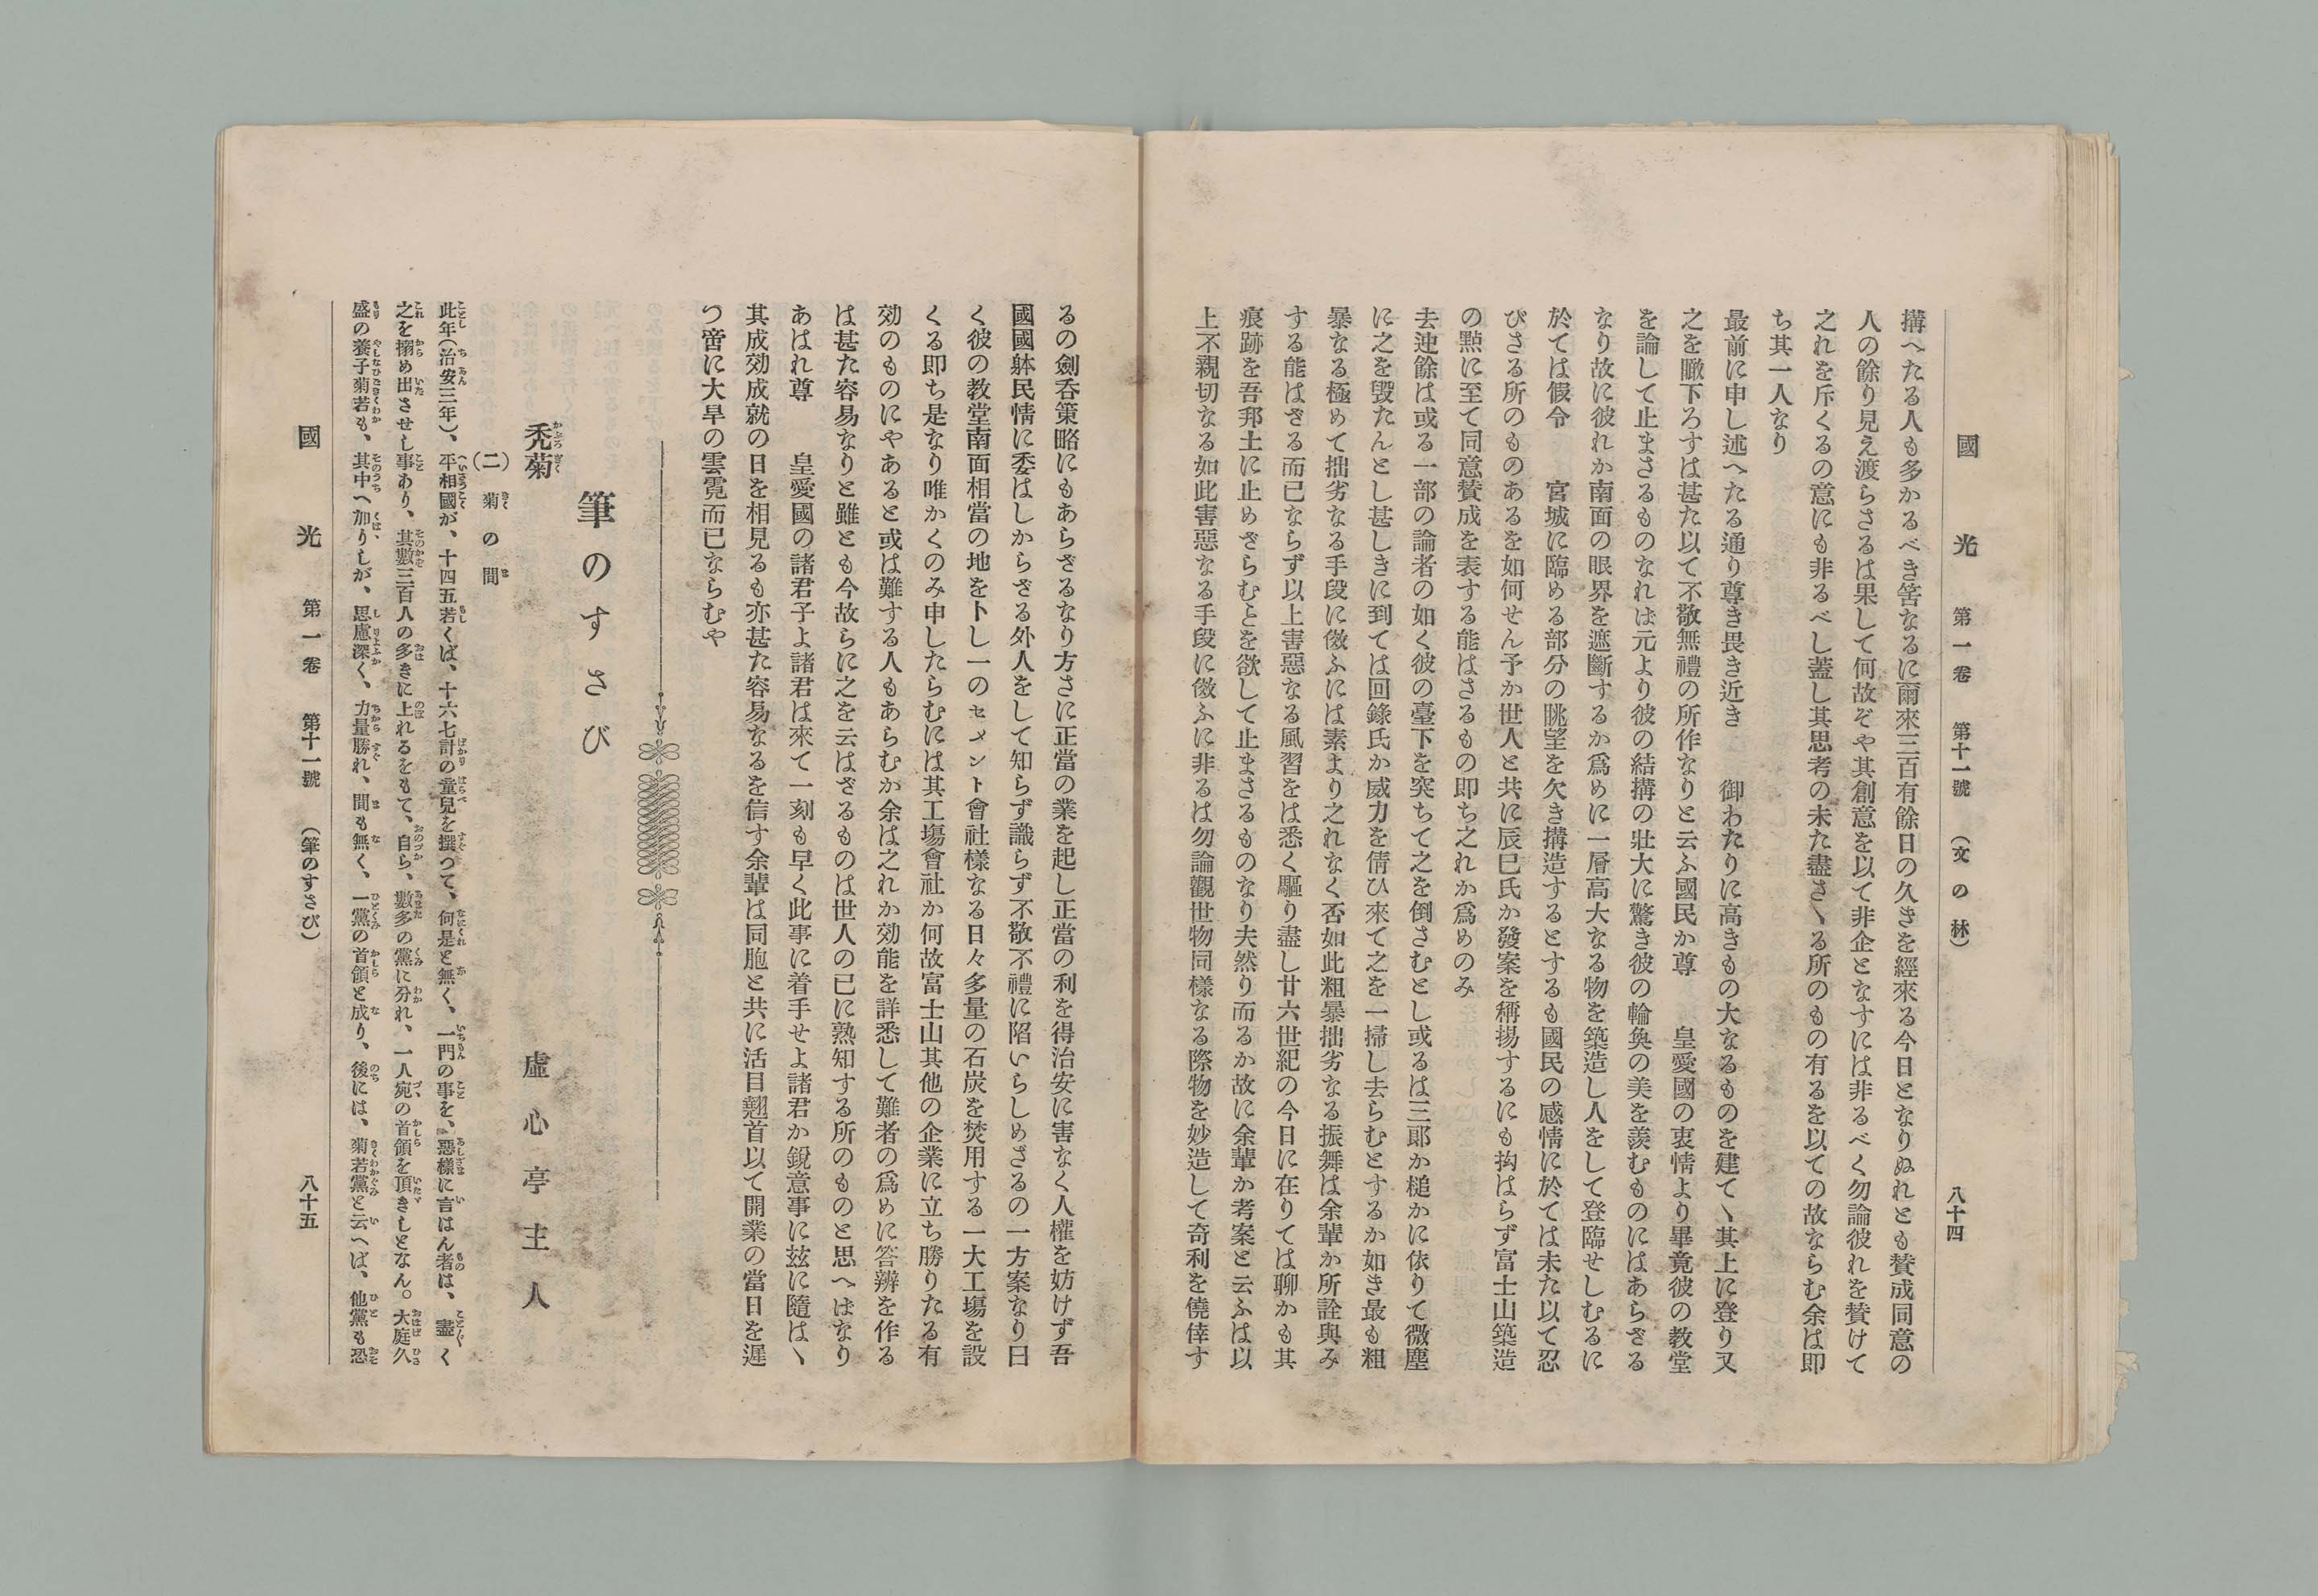 國光 第一卷 第十一號 (文の林) 八十四
搆へたる人も多かるべき筈なるに爾來三百有餘日の久きを經來る今日となりぬれとも賛成同意の
人の餘り見え渡らさるは果して何故ぞや其創意を以て非企となすには非るべく勿論彼れを賛けて
之れを斥くるの意にも非るべし蓋し其思考の未た盡さヽる所のもの有るを以ての故ならむ余は即
ち其一人なり
最前に申し述へたる通り尊き畏き近き　御わたりに高きもの大なるものを建てヽ其上に登り又
之を瞰下ろすは甚た以て不敬無禮の所作なりと云ふ國民か尊　皇愛國の衷情より畢竟彼の教堂
を論して止まさるものなれは元より彼の結搆の壯大に驚き彼の輪奐の美を羨むものにはあらさる
なり故に彼れか南面の眼界を遮斷するか爲めに一層高大なる物を築造し人をして登臨せしむるに
於ては假令　宮城に臨める部分の眺望を欠き搆造するとするも國民の感情に於ては未た以て忍
びさる所のものあるを如何せん予か世人と共に辰巳氏か發案を稱揚するにも拘はらず富士山築造
の點に至て同意賛成を表する能はさるもの即ち之れか爲めのみ
去迚餘は或る一部の論者の如く彼の臺下を突ちて之を倒さむとし或るは三郎か槌かに依りて微塵
に之を毀たんとし甚しきに到ては回錄氏か威力を倩ひ來て之を一掃し去らむとするか如き最も粗
暴なる極めて拙劣なる手段に傚ふには素より之れなく否如此粗暴拙劣なる振舞は余輩か所詮與み
する能はさる而已ならず以上害惡なる風習をは悉く驅り盡し廿六世紀の今日に在りては聊かも其
痕跡を吾邦土に止めざらむとを欲して止まさるものなり夫然り而るか故に余輩か考案と云ふは以
上不親切なる如此害惡なる手段に傚ふに非るは勿論觀世物同樣なる際物を妙造して奇利を僥倖す
るの劍呑策略にもあらざるなり方さに正當の業を起し正當の利を得治安に害なく人權を妨けず吾
國國躰民情に委はしからざる外人をして知らず識らず不敬不禮に陷いらしめざるの一方案なり曰
く彼の教堂南面相當の地を卜し一のセメント會社樣なる日々多量の石炭を焚用する一大工塲を設
くる即ち是なり唯かくのみ申したらむには其工塲會社か何故富士山其他の企業に立ち勝りたる有
効のものにやあると或は難する人もあらむか余は之れか効能を詳悉して難者の爲めに答辨を作る
は甚た容易なりと雖とも今故らに之を云はざるものは世人の已に熟知する所のものと思へはなり
あはれ尊　皇愛國の諸君子よ諸君は來て一刻も早く此事に着手せよ諸君か鋭意事に玆に隨はヽ
其成効成就の日を相見るも亦甚た容易なるを信す余輩は同胞と共に活目翹首以て開業の當日を遲
つ啻に大旱の雲霓而已ならむや
筆のすさび
禿菊 虛心亭主人
(二) 菊の間
此年(治安三年)、平相國が、十四五若くば、十六七計の童兒を撰つて、何是と無く、一門の事を、惡樣に言はん者は、盡く
之を搦め出させし事あり、其數三百人の多きに上れるをもて、自ら、數多の黨に分れ、一人宛の首領を頂きしとなん。大庭久
盛の養子菊若も、其中へ加りしが、思慮深く、力量勝れ、間も無く、一黨の首領と成り、後には、菊若黨と云へば、他黨も恐
國光 第一卷 第十一號 (筆のすさび) 八十五